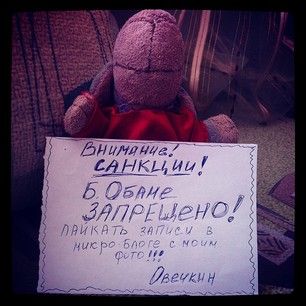 Внимание!
САНКЦИИ!
Б. Обаме
ЗАПРЕЩЕНО!
ЛАЙКАТЬ ЗАПИСИ В
МИКРО-БЛОГЕ С МОИМ
ФОТО!!!
Овечкин